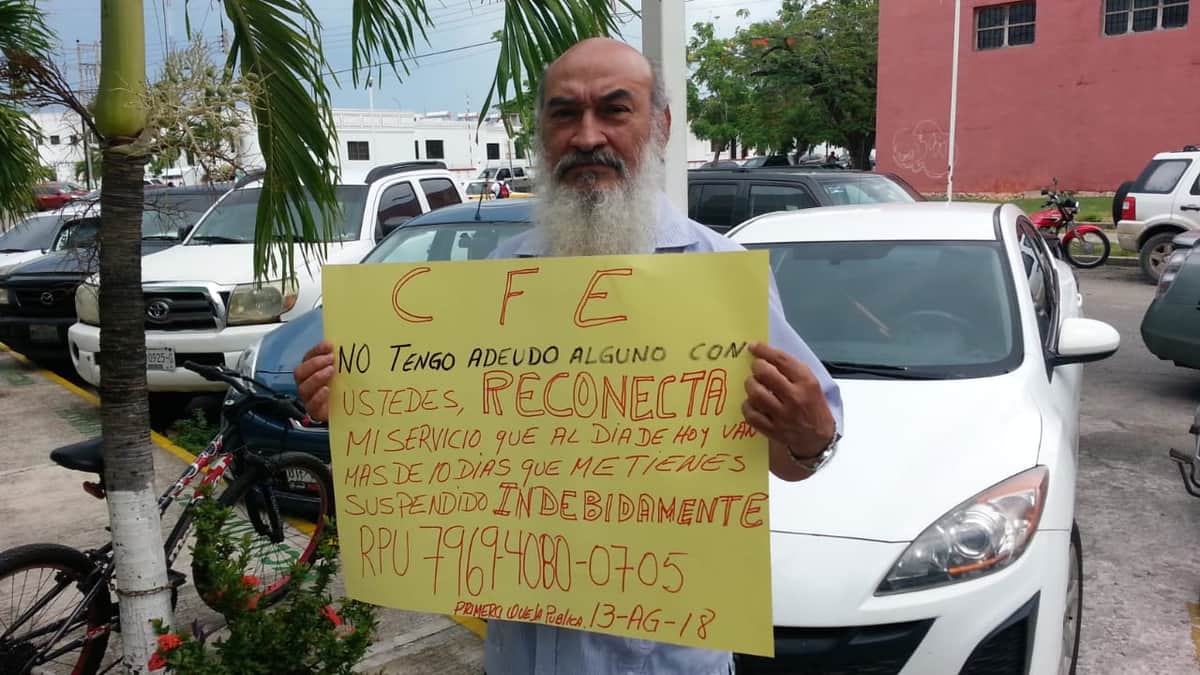 CFE
NO TENGO ADEUDO ALGUNO CON
USTEDES, RECONECTA
MI SERVICIO QUE AL DIA DE HOY VAN
MAS DE 10 DIAS QUE ME TIENES
SUSPENDIDO INDEBIDAMENTE
RPU 7969-4080-0705
PRIMERA QUEJA PUBLICA. 13-AG-18